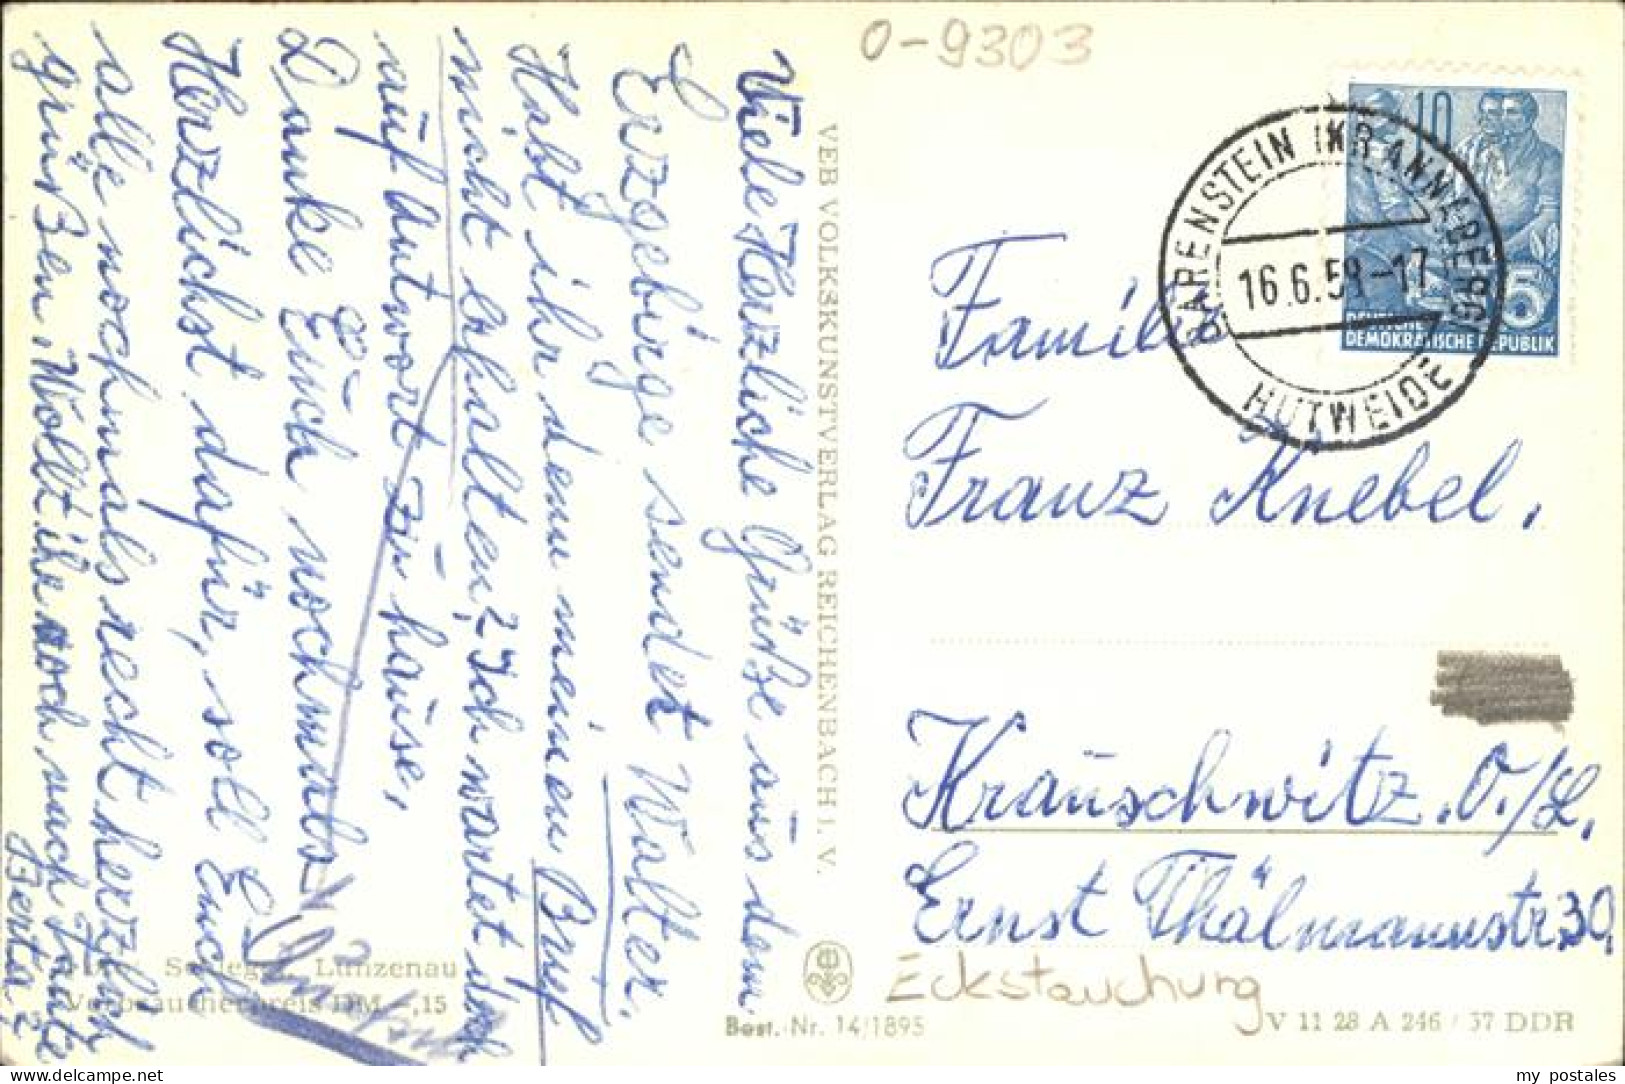 O-9303
Viele Herzliche Grüße aus dem
Erzgebirge sendet Walter.
Habt ihr denn meinen Brief
nicht erhalten, Ich wartet doch
auf Antwort zu hause,
Danke Euch nochmals
Herzlichst dafür, soll Euch
alle nochmals recht herzlich
grüßen, Wollt ihr noch nach Tante
Berta?
VEB VOLKSKUNSTVERLAG REICHENBACH I. V.
BÄRENSTEIN (KR ANNABERG)
16.6.59-17
HUTWEIDE
10
5
DEUTSCHE
DEMOKRATISCHE REPUBLIK
Familie
Franz Knebel.
Krauschwitz. O./L.
Ernst Thälmannstr. 30
Eckstauchung
Lunzenau
Verbraucherpreis DM -,15
Best.-Nr. 14/1895
V 11 28 A 246 / 57 DDR
my_postales